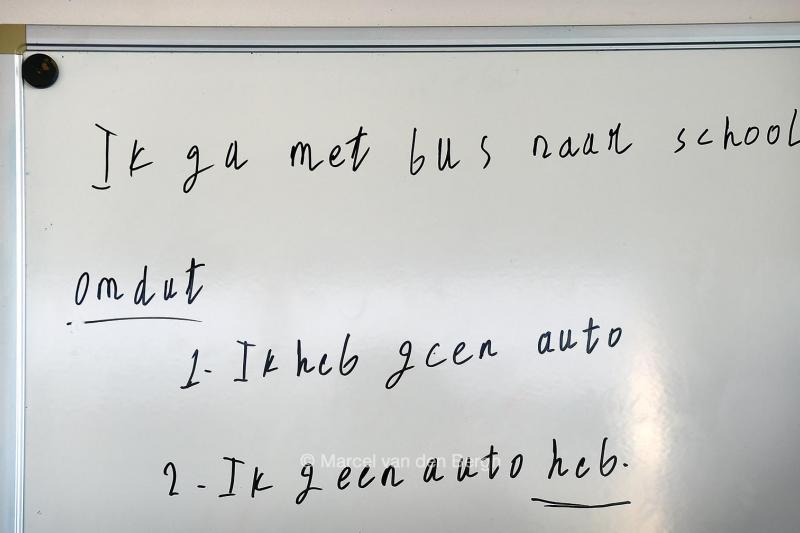 Ik ga met bus naar school
omdat
1- Ik heb geen auto
2 - Ik geen auto heb.
© Marcel van den Bergh